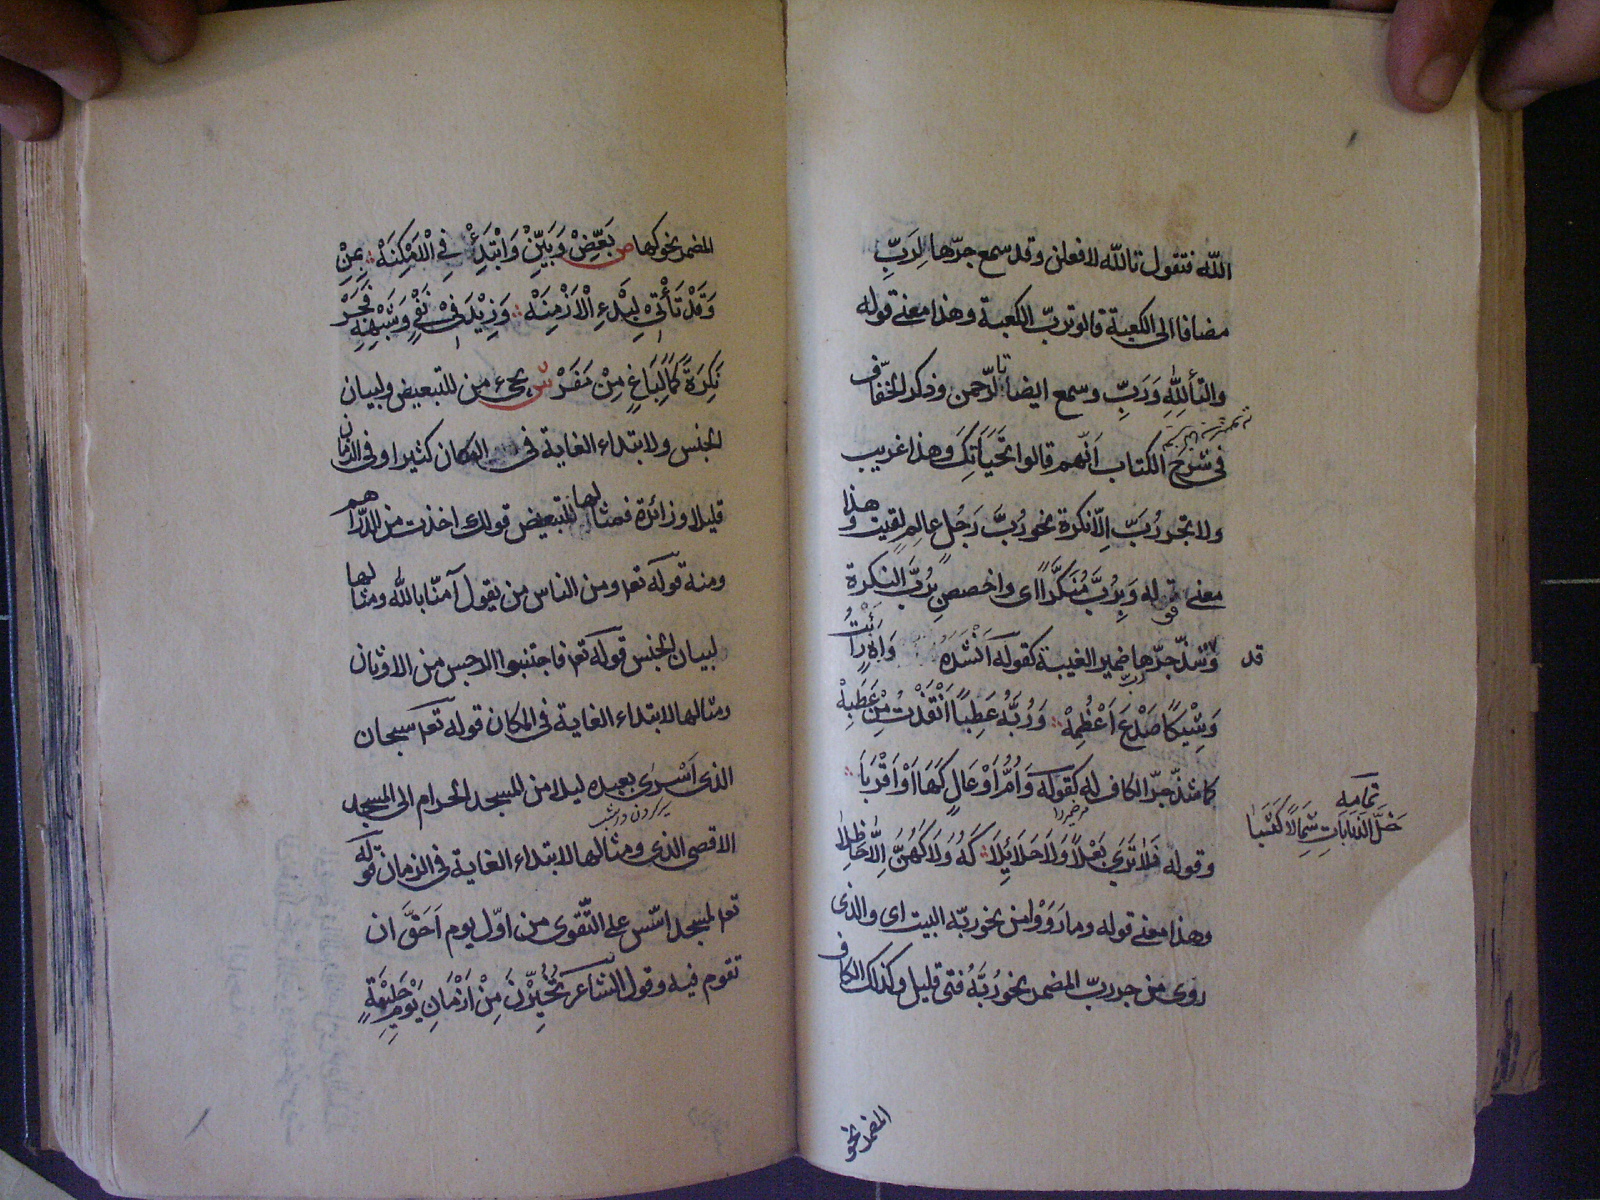 الله فتقول تالله لافعلن وقد سمع جرّها لِرَبِّ
مضافا الى الكعبة قالو تربّ الكعبة وهذا معنے قوله
والتأ لِلّٰهِ وَرَبِّ وسمع ايضا تا لرّحمن وذكر الخفّاف
فى شرح الكتاب اَنّهم قالوا تَحَيَاتِكَ وهذا غريب
ولا تجر رُبّ اِلّا نكرة نحو رُبَّ رَجُل عالِم لقيت وهذا
معنے قوله وَبِرُبَّ مُنَكَّرًا اى واخصص بِرُبَّ النكرة
وشذّ جرّها ضمير الغيبة كقوله اَنْشَدَهُ وَاهٍ رَأَبْتُ
قد
وَشِيْكًا صَدْعَ اَعْظُمِهْ وَرُبَّهُ عَطِبًا اَنْقَذْتُ مِنْ عَطَبِهْ
كما شذّ جرّ الكاف له كقوله وَاُمُّ اَوْعَالٍ كَهَا اَوْ اَقْرَبَا
تمامه
خَلَّ الذنابات شِمالًا كَثَبَا
وقوله فَلَا تَرٰى بَعْلًا وَلَا حَلَايِلَا كَهُ وَلَا كَهُنَّ اِلَّا حَاظِلَا
وهذا معنے قوله وما رَوَوْا من نحو ربّه البيت اى والذى
روى من جر ربّ المضمر نحو رُبَّهُ فتى قليل وكذلك الكاف
المضمر نحو
المضمر نحو كها ص بَعِّضْ وَبَيِّنْ وَابْتَدِئْ فِى الْاَمْكِنَهْ بِمِنْ
وَقَدْ تَأْتِىْ لِبَدْءِ الْاَزْمِنَهْ وَزِيْدَ فِىْ نَفْىٍ وَشِبْهِهٖ فَجَرْ
نَكِرَةً كَمَا لِبَاغٍ مِنْ مَفَرْ ش يجىء من للتبعيض ولبيان
الجنس ولابتداء الغاية فى المكان كثيرا وفى الزمان
قليلا وزائدة فمثالها للتبعيض قولك اخذت من الدّراهم
ومنه قوله تعا ومن الناس من يقول آمنّا بالله ومثالها
لبيان الجنس قوله تعا فاجتنبوا الرجس من الاوثان
ومثالها لابتداء الغاية فى المكان قوله تعا سبحان
الذى اَسْرٰى بعبده ليلا من المسجد الحرام الى المسجد
الاقصى الذى ومثالها لابتداء الغاية فى الزمان قوله
تعا لمسجد اسّس على التّقوى من اوّل يوم اَحَقُّ ان
تقوم فيه وقول الشاعر تُخُيِّرْنَ مِنْ اَزْمَانِ يَوْمِ حَلِيْمَةٍ